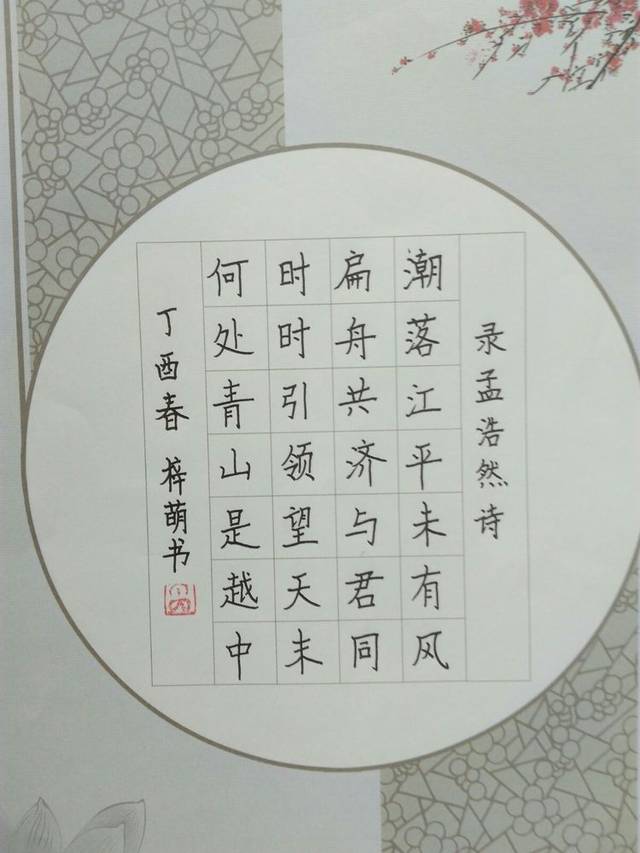 录孟浩然诗
潮落江平未有风
扁舟共济与君同
时时引领望天末
何处青山是越中
丁酉春 梓萌书